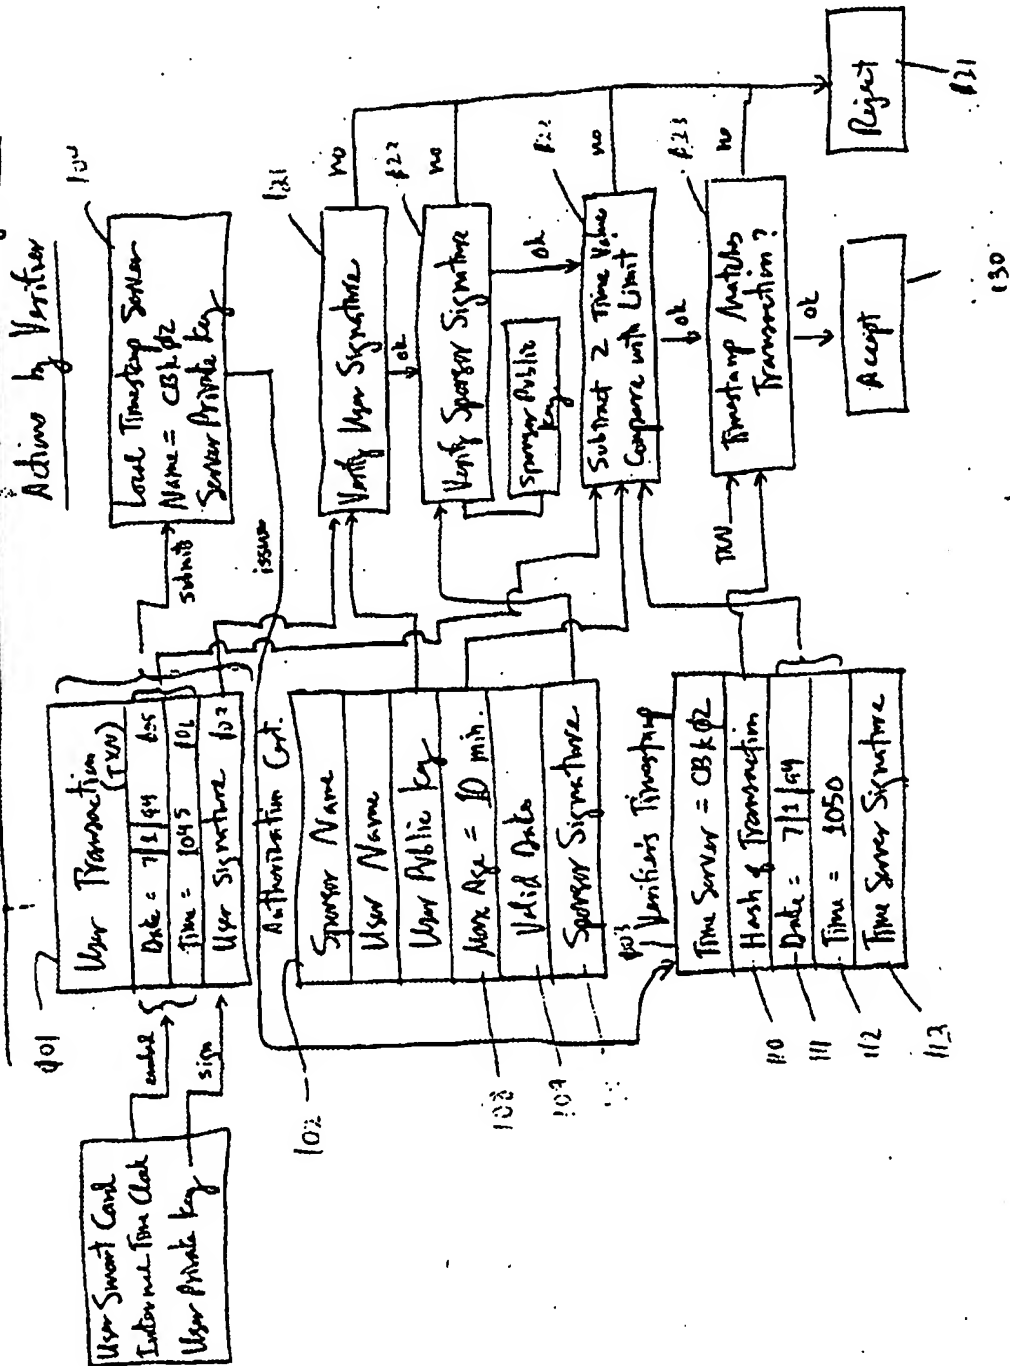 Action by Verifier
User Smart Card
Internal Time Clock
User Private Key
embed
sign
101
User Transaction
(TXN)
Date = 7/1/94
Time = 1045
User Signature
submits
Local Timestamp Server
Name = CBk02
Server Private Key
issues
102
Authorization Cert.
Sponsor Name
User Name
User Public Key
Max Age = 10 min.
Valid Dates
Sponsor Signature
108
107
103
Verifier's Timestamp
Time Server = CBk02
Hash of Transaction
Date = 7/1/94
Time = 1050
Time Server Signature
110
111
112
113
121
Verify User Signature
no
ok
122
Verify Sponsor Signature
no
ok
Sponsor Public
Key
Subtract 2 Time Values
Compare with Limit
122
no
ok
TXN
Timestamp Matches
Transaction?
123
no
ok
Accept
130
Reject
121